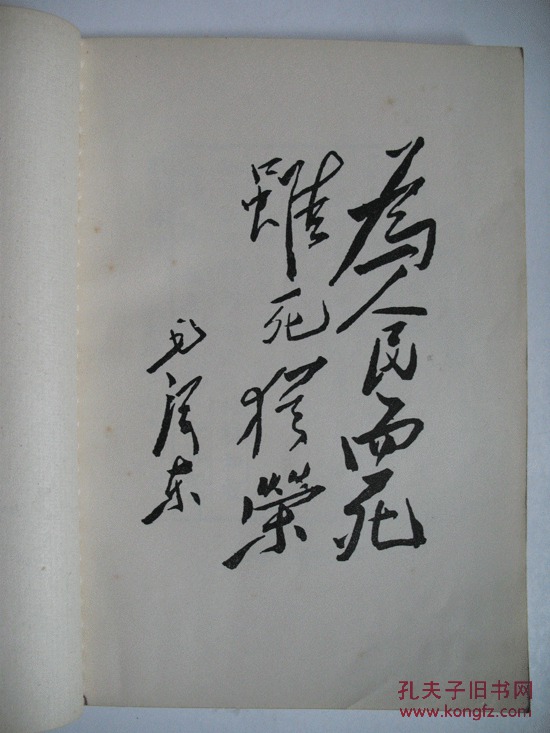 為人民而死
雖死猶榮
毛澤东
孔夫子旧书网
www.kongfz.com